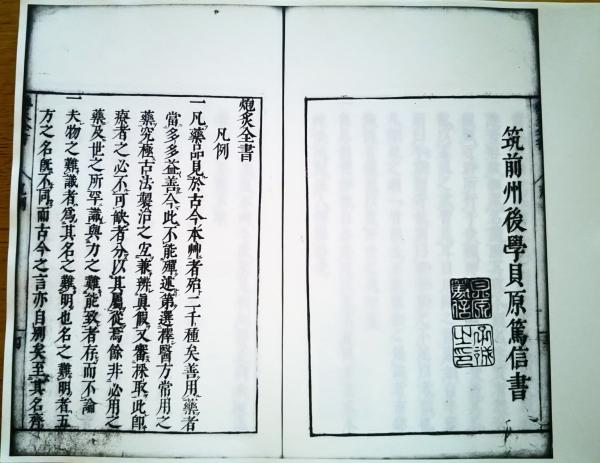 筑前州後學貝原篤信書
炮炙全書
凡例
一凡藥品見於古今本艸者殆二千種矣善用藥者
當多多益善今此不能殫述第選擇醫方常用之
藥究極古法製治之宜兼辨眞假又審採取此卽
療者之必不可缺者分以其風從焉餘非必用之
藥及世之所罕識與力之難能致者存而不論
一夫物之難識者爲其名之難明也名之難明者五
方之名旣不同而古今之言亦自別矣至其名齊